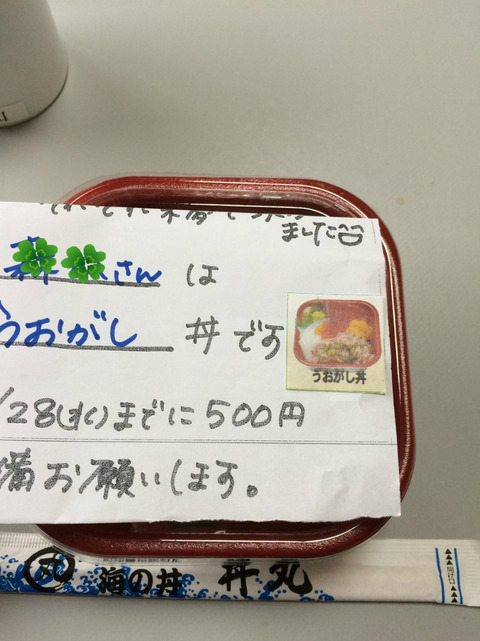 ました
さん は
うおがし 丼です
うおがし丼
/28(水)までに500円
備お願いします。
海の丼 丼丸